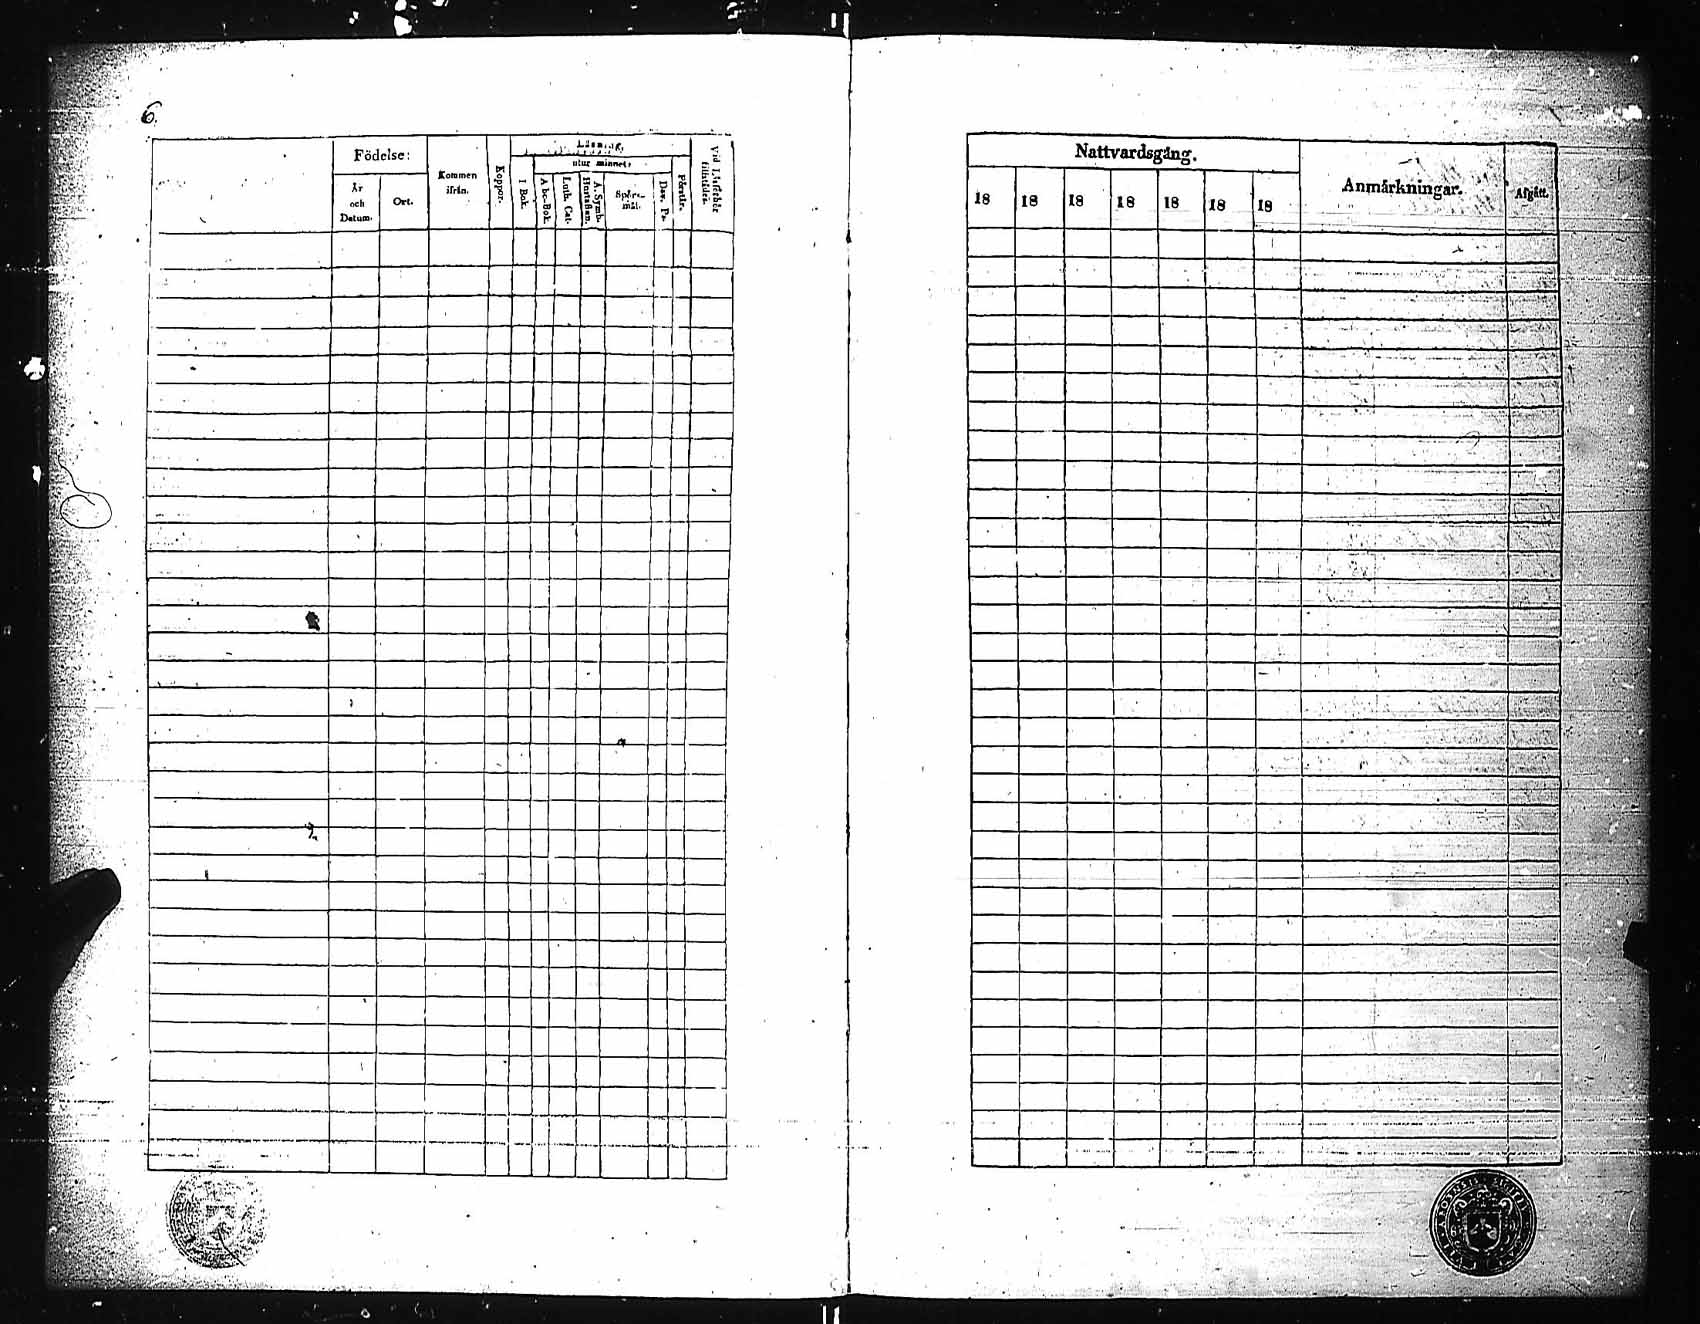 6.
Födelse:
År
och
Datum.
Ort.
Kommen
ifrån.
Koppor.
Läsning,
utur minnet:
I Bok.
A bc-Bok.
Luth. Cat.
A. Symb.
Hustaflan.
Spörs-
mål.
Dav. Ps.
Förstår.
Vid Läsförhör
tillstädes.
Nattvardsgång.
18 18 18 18 18 18 18
Anmärkningar.
Afgått.